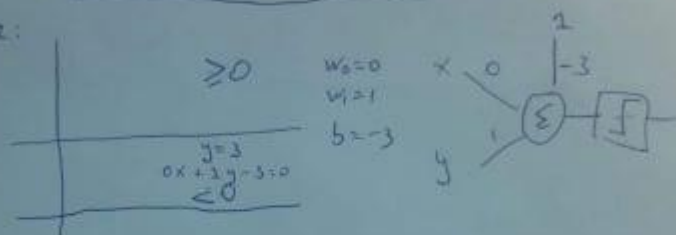 2:
≥0
y=3
0x+1y-3=0
<0
w₀=0
w₁=1
b=-3
x 0
1
-3
Σ
y 1